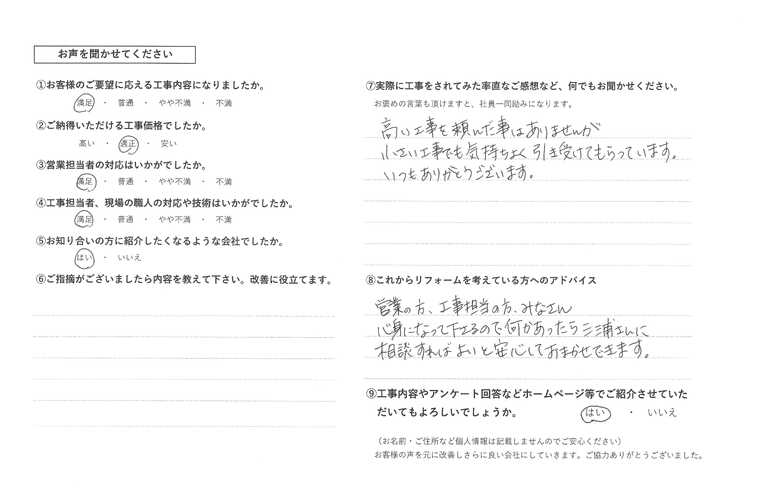 お声を聞かせてください
①お客様のご要望に応える工事内容になりましたか。
満足 ・ 普通 ・ やや不満 ・ 不満
②ご納得いただける工事価格でしたか。
高い ・ 適正 ・ 安い
③営業担当者の対応はいかがでしたか。
満足 ・ 普通 ・ やや不満 ・ 不満
④工事担当者、現場の職人の対応や技術はいかがでしたか。
満足 ・ 普通 ・ やや不満 ・ 不満
⑤お知り合いの方に紹介したくなるような会社でしたか。
はい ・ いいえ
⑥ご指摘がございましたら内容を教えて下さい。改善に役立てます。
⑦実際に工事をされてみた率直なご感想など、何でもお聞かせください。
お褒めの言葉も頂けますと、社員一同励みになります。
高い工事を頼んだ事はありませんが
小さい工事でも気持ちよく引き受けてもらっています。
いつもありがとうございます。
⑧これからリフォームを考えている方へのアドバイス
営業の方、工事担当の方、みなさん
心身になって下さるので何かあったら三浦さんに
相談すればよいと安心しておまかせできます。
⑨工事内容やアンケート回答などホームページ等でご紹介させていた
だいてもよろしいでしょうか。 はい ・ いいえ
（お名前・ご住所など個人情報は記載しませんのでご安心ください）
お客様の声を元に改善しさらに良い会社にしていきます。ご協力ありがとうございました。